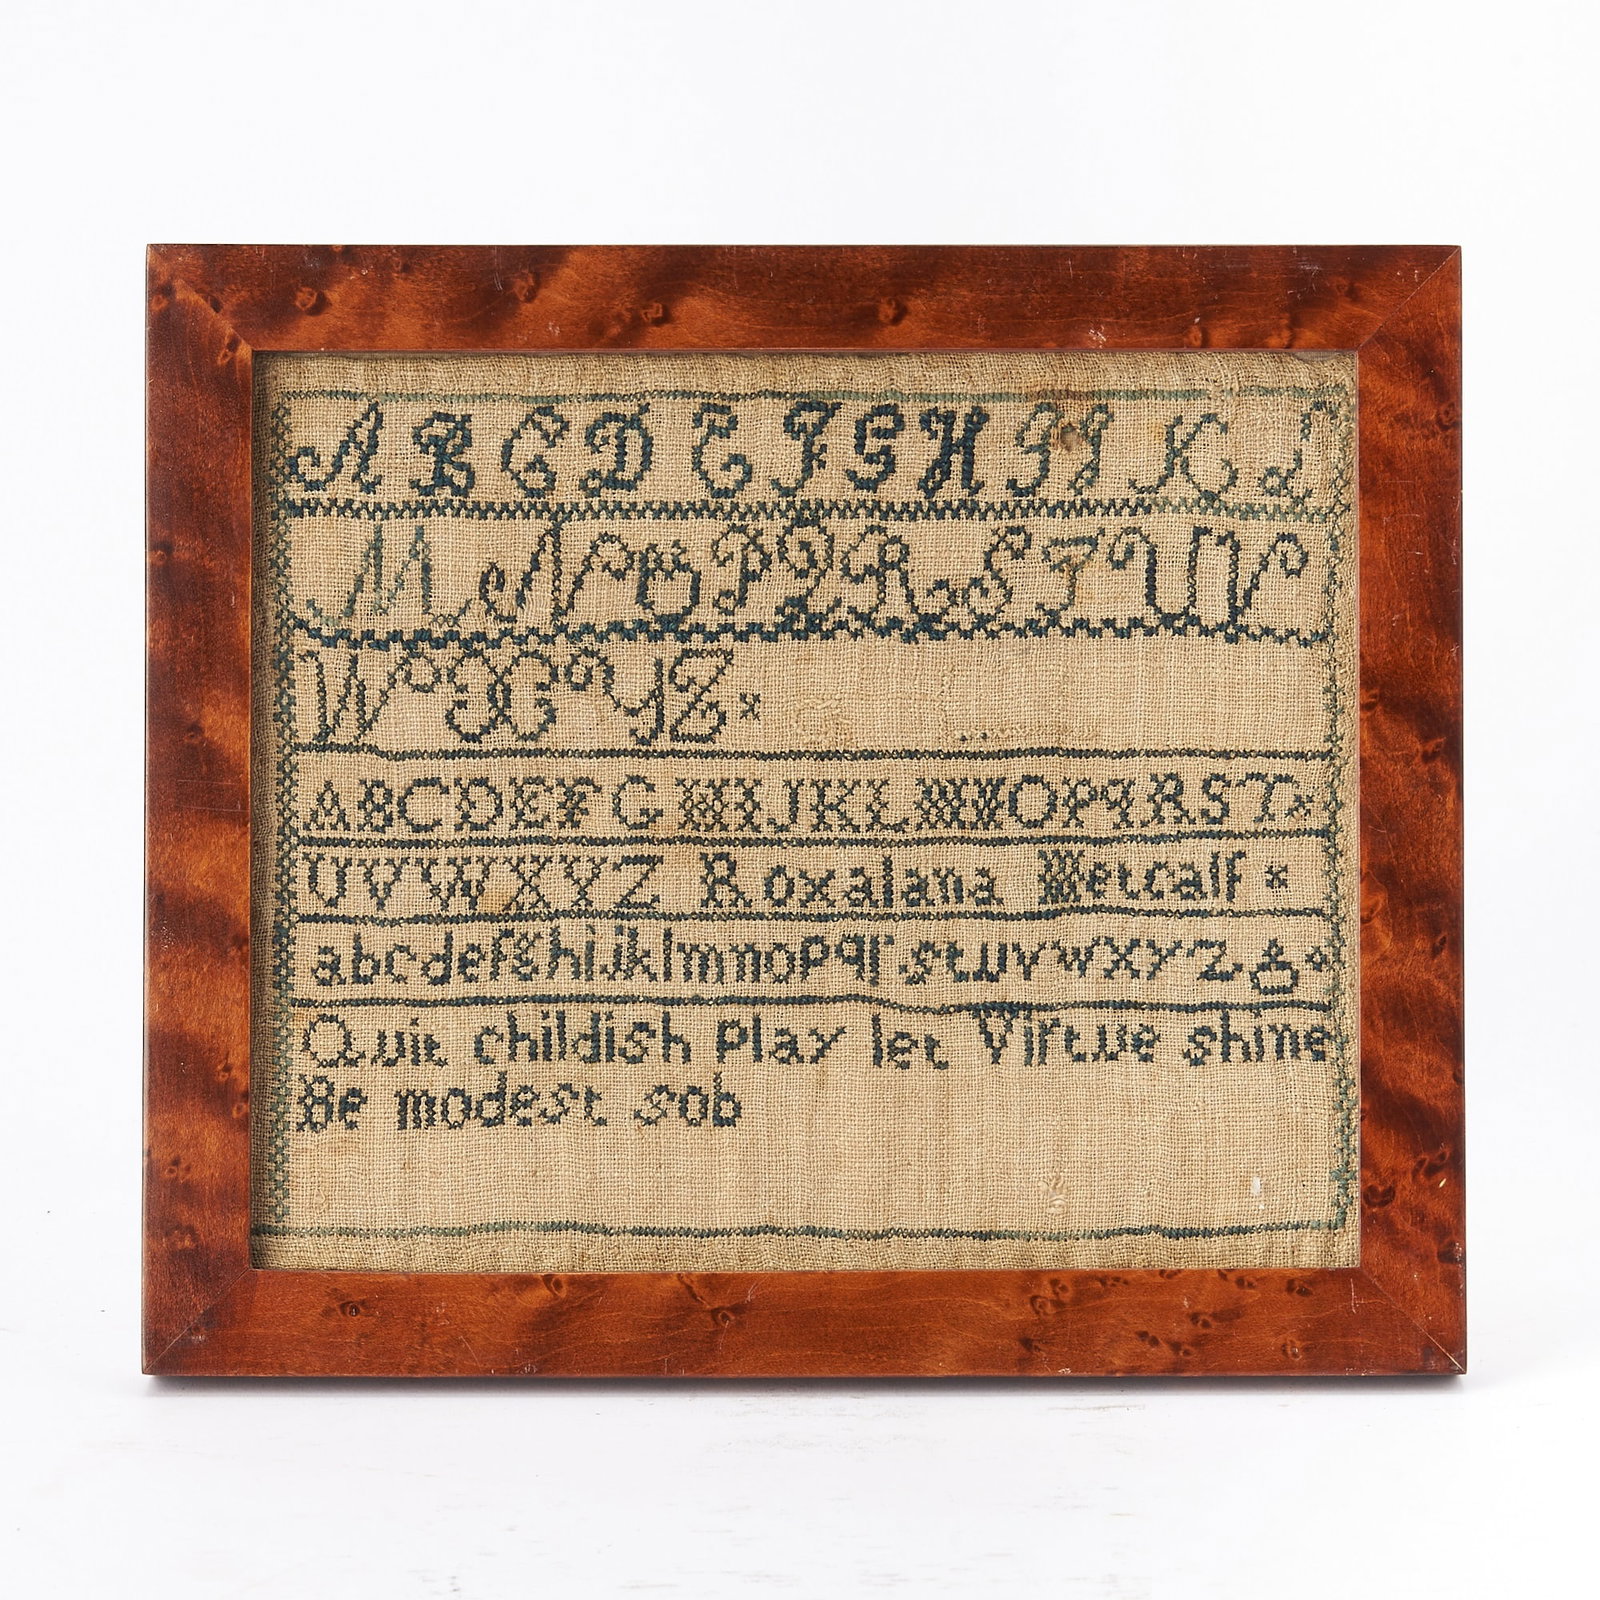 A B C D E F G H I J K L
M N O P Q R S T U V
W X Y Z
A B C D E F G H I J K L M N O P Q R S T
U V W X Y Z Roxalana Metcalf
a b c d e f g h i j k l m n o p q r s t u v w x y z &
Quit childish play let Virtue shine
Be modest sob